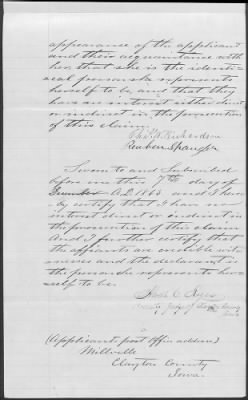 appearance of the applicant
and their acquaintance with
her, that she is the identi-
cal person she represents
herself to be, and that they
have no interest either direct
or indirect in the prosecution
of this claim.
Richardson
Reuben
Sworn to and Subscribed
before me this 7th day of
A.D. 1865 and I here-
by certify that I have no
interest direct or indirect in
the prosecution of this claim
And I further certify that
the affiants are credible wit-
nesses and the declarant is
the person she represents her-
self to be.
County Judge of
(Applicants post office address)
Millville
Clayton County
Iowa.